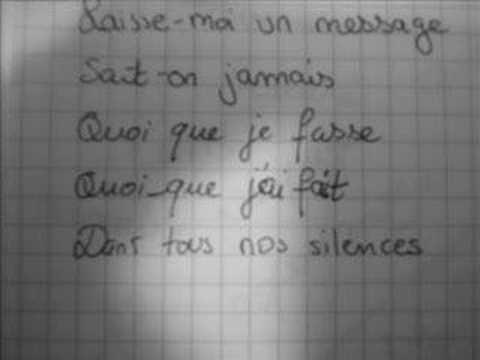 Laisse-moi un message
Sait-on jamais
Quoi que je fasse
Quoi-que j'ai fait
Dans tous nos silences